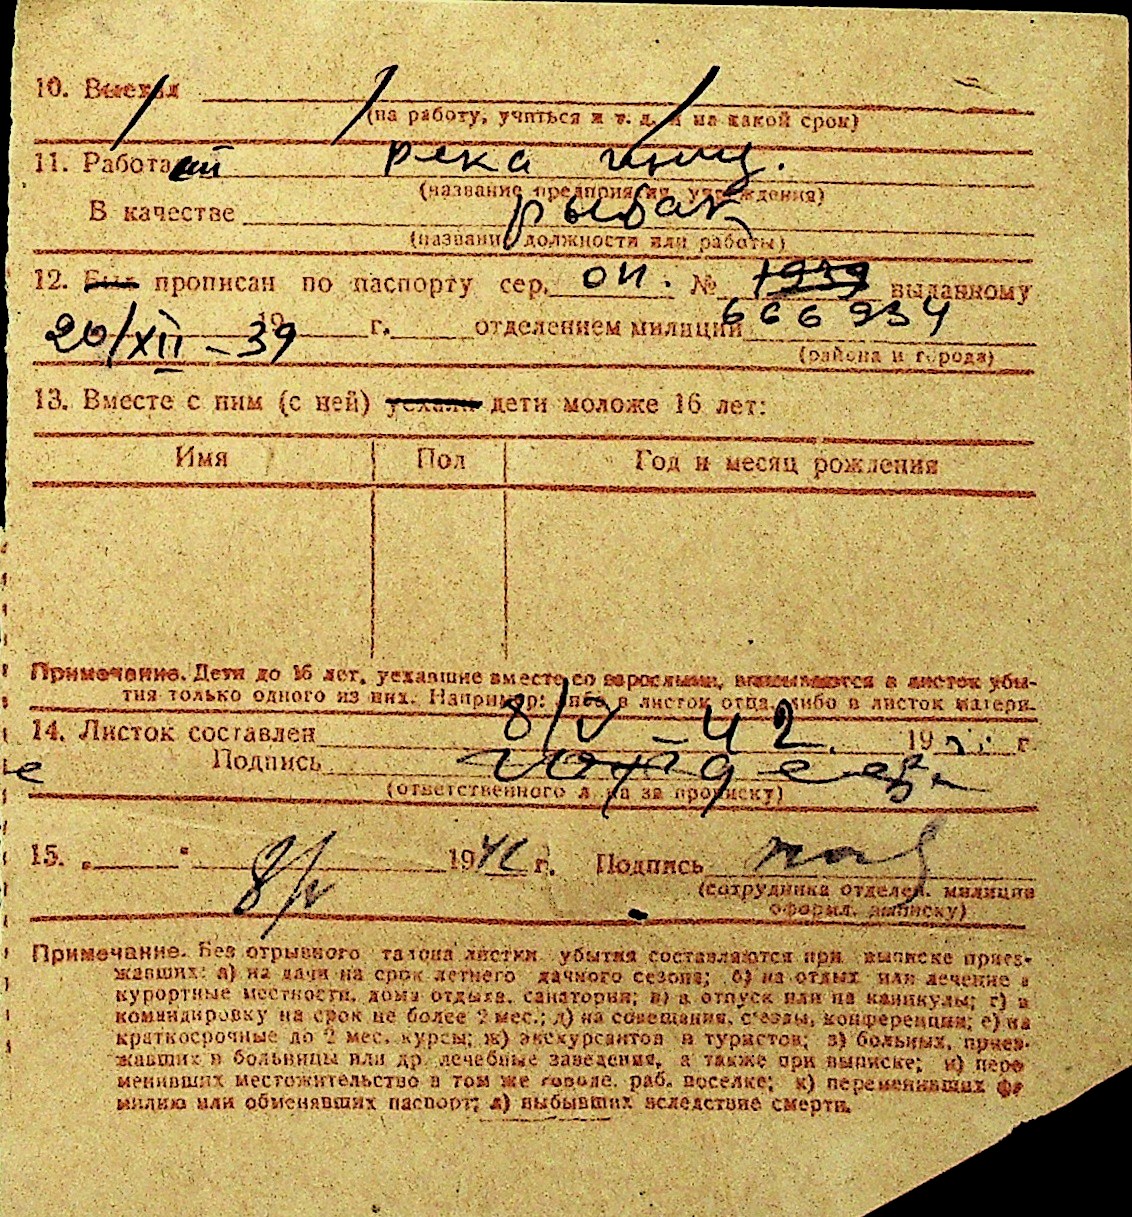 10. Выехал
(на работу, учиться и т. д. и на какой срок)
11. Работает река
(название предприятия, учреждения)
В качестве рыбак
(название должности или работы)
12. Был прописан по паспорту сер. ОИ. № 1939 выданному
20/XII-39 19 г. отделением милиции 666934
(района и города)
13. Вместе с ним (с ней) уехали дети моложе 16 лет:
Имя Пол Год и месяц рождения
Примечание. Дети до 16 лет, уехавшие вместе со взрослыми, вписываются в листок убы-
тия только одного из них. Например: либо в листок отца, либо в листок матери.
14. Листок составлен 8/V-42. 19 г.
Подпись
(ответственного лица за прописку)
15. „ " 8/V 1942 г. Подпись
(сотрудника отделен. милиции
оформл. выписку)
Примечание. Без отрывного талона листки убытия составляются при выписке приез-
жавших: а) на дачи на срок летнего дачного сезона; б) на отдых или лечение в
курортные местности, дома отдыха, санатории; в) в отпуск или на каникулы; г) в
командировку на срок не более 2 мес.; д) на совещания, с'езды, конференции; е) на
краткосрочные до 2 мес. курсы; ж) экскурсантов и туристов; з) больных, приез-
жавших в больницы или др. лечебные заведения, а также при выписке; и) пере
менивших местожительство в том же городе, раб. поселке; к) переменивших фа
милию или обменявших паспорт; л) выбывших вследствие смерти.